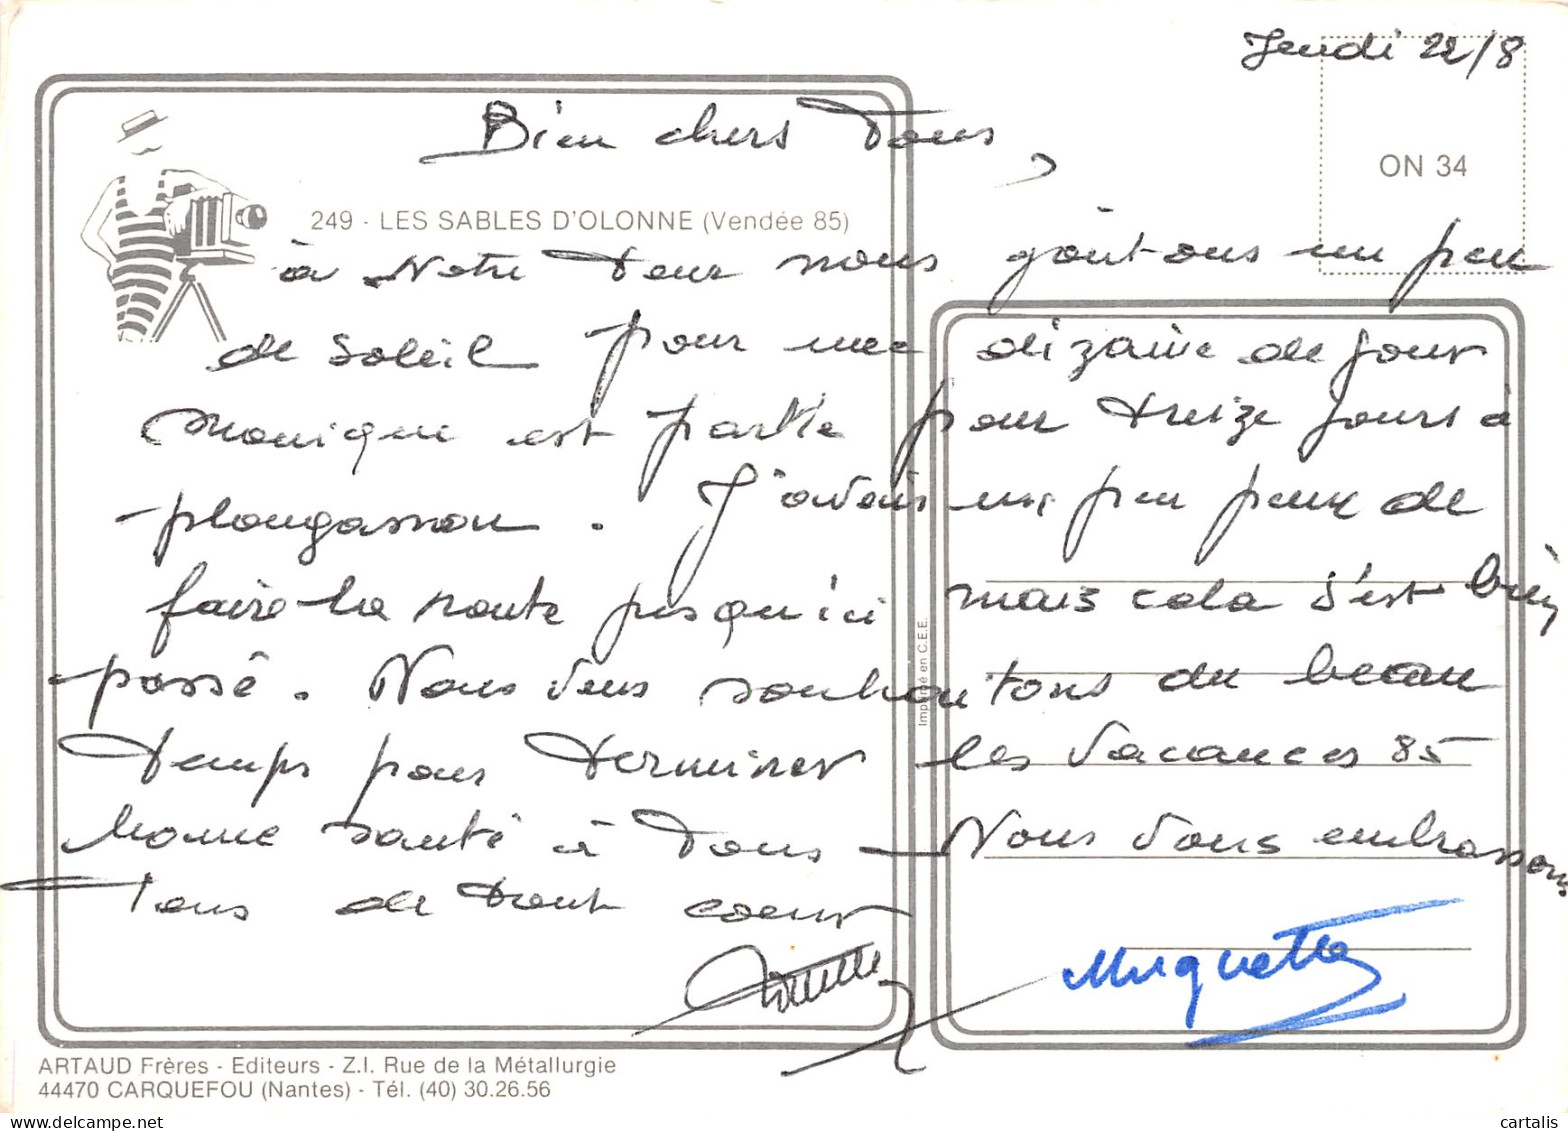 Jeudi 22/8
ON 34
Bien chers Tous,
249 - LES SABLES D'OLONNE (Vendée 85)
à Notre tour nous goûtons un peu
de soleil pour une dizaine de jours
Monique est partie pour treize jours à
plougasnou. J'avais un peu peur de
faire la route jusqu'ici mais cela s'est bien
passé. Nous vous souhaitons du beau
temps pour terminer les vacances 85
bonne santé à tous - Nous vous embrassons
Tous de tout coeur
Muguette
Imprimé en C.E.E.
ARTAUD Frères - Editeurs - Z.I. Rue de la Métallurgie
44470 CARQUEFOU (Nantes) - Tél. (40) 30.26.56
cartalis